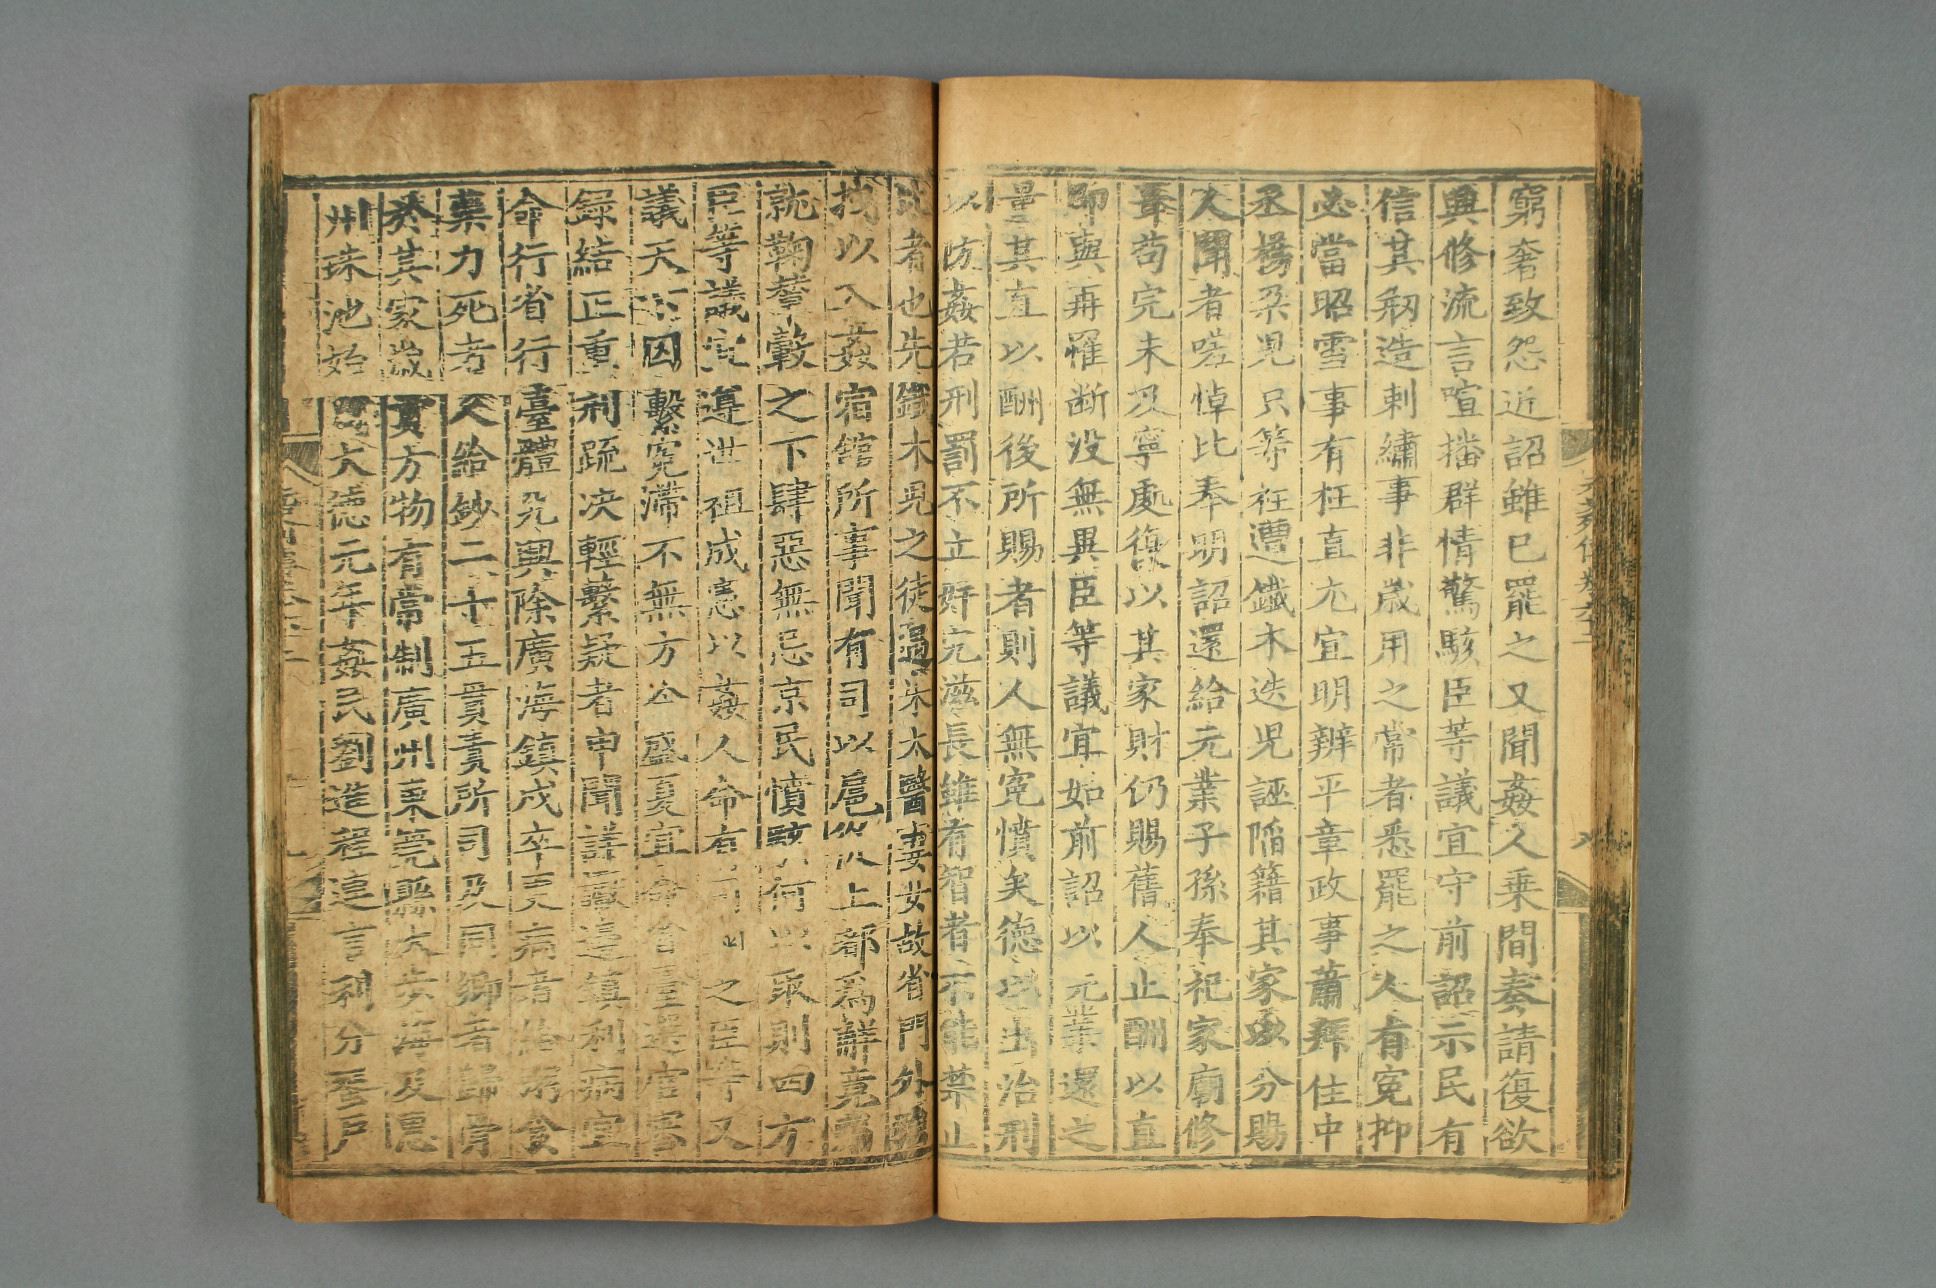 窮奢致怨近詔雖已罷之又聞姦人乗間奏請復欲
興修流言喧播群情驚駭臣等議宜守前詔示民有
信其刱造刺繡事非歲用之常者悉罷之人有寃抑
必當昭雪事有枉直尢宜明辨平章政事蕭拜住中
丞楊朶児只等枉遭鐵木迭児誣陥籍其家以分賜
人聞者嗟悼比奉明詔還給元業子孫奉祀家廟修
葺苟完未及寧處復以其家財仍賜舊人止酬以直
即與再罹断没無異臣等議宜如前詔以元業還之
量其直以酬後所賜者則人無寃憤矣德以出治刑
以防姦若刑罰不立奸宄滋長雖有智者不能禁止
比者也先鐵木児之徒遇朱太醫妻女故省門外強
拽以入姦宿舘所事聞有司以扈從上都爲觧竟弗
就鞠輦轂之下肆惡無忌京民憤駭何以取則四方
臣等議宜遵世祖成憲以姦人命有司 之臣等又
議天下囚繫寃滯不無方今盛夏宜命省臺選官審
録結正重刑疏决輕繫疑者申聞詳讞邊鎮利病宜
命行省行臺體究興除廣海鎮戍卒更病者給粥食
藥力死者人給鈔二十五貫責所司及同郷者歸骨
於其家歳貢方物有常制廣州東莞縣大歩海及惠
州珠池始自大德元年姦民劉進程連言利分蜑戸
元史列傳卷六十二